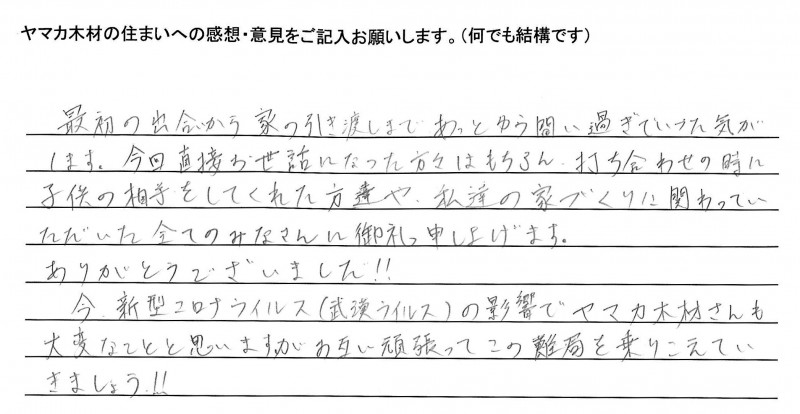 ヤマカ木材の住まいへの感想・意見をご記入お願いします。（何でも結構です）
最初の出会から家の引き渡しまであっとゆう間い過ぎていった気が
します。今回直接お世話になった方々はもちろん、打ち合わせの時に
子供の相手をしてくれた方達や、私達の家づくりに関わってい
ただいた全てのみなさんに御礼申し上げます。
ありがとうございました!!
今、新型コロナウイルス(武漢ウイルス)の影響でヤマカ木材さんも
大変なことと思いますがお互い頑張ってこの難局を乗りこえてい
きましょう!!